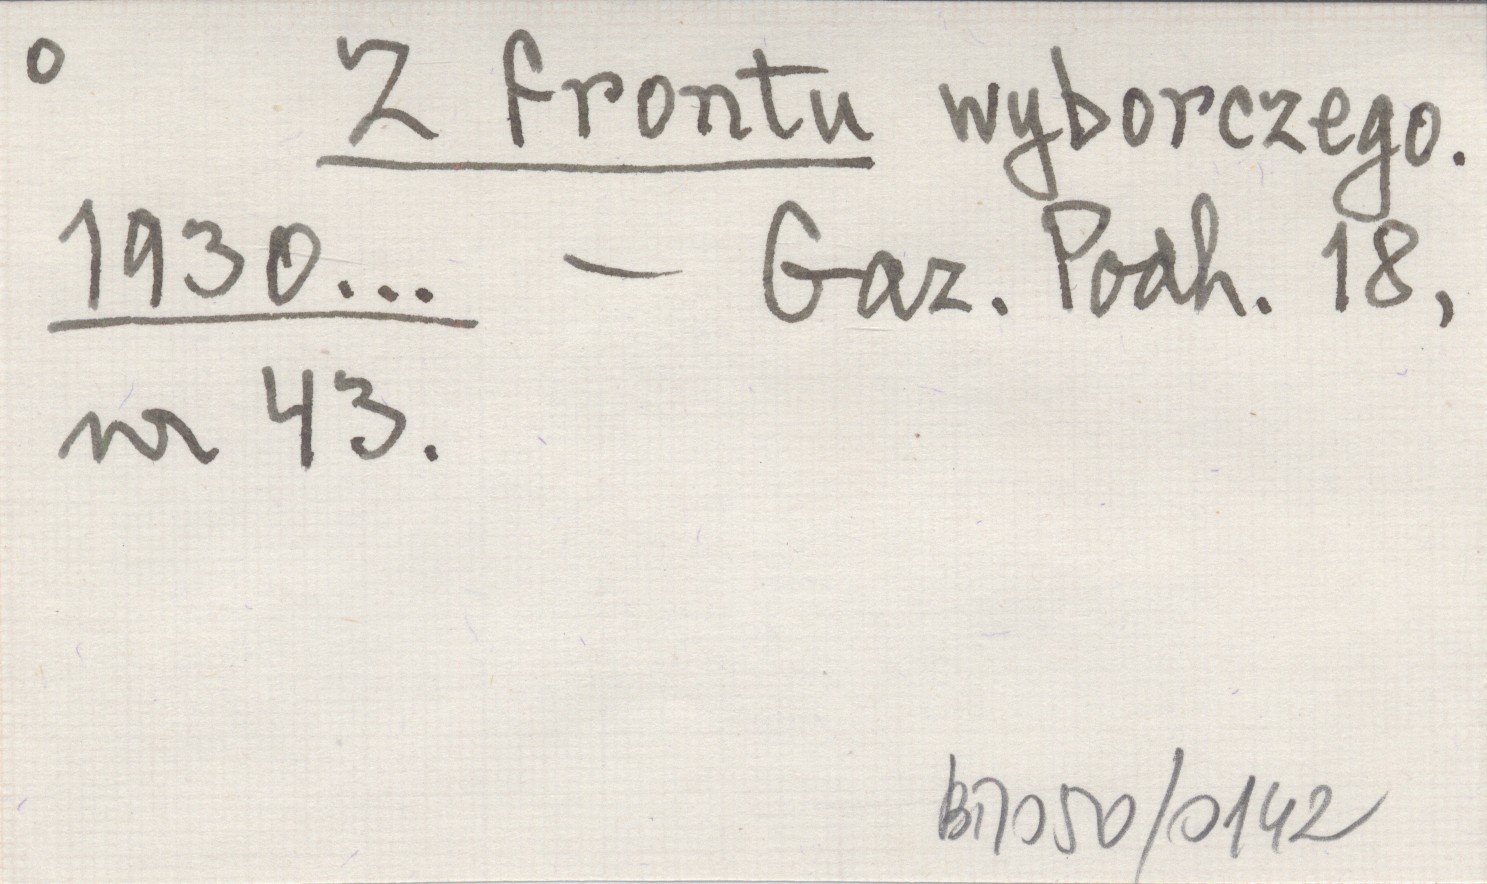 o Z frontu wyborczego.
1930... — Gaz. Podh. 18,
nr 43.
B17050/0142